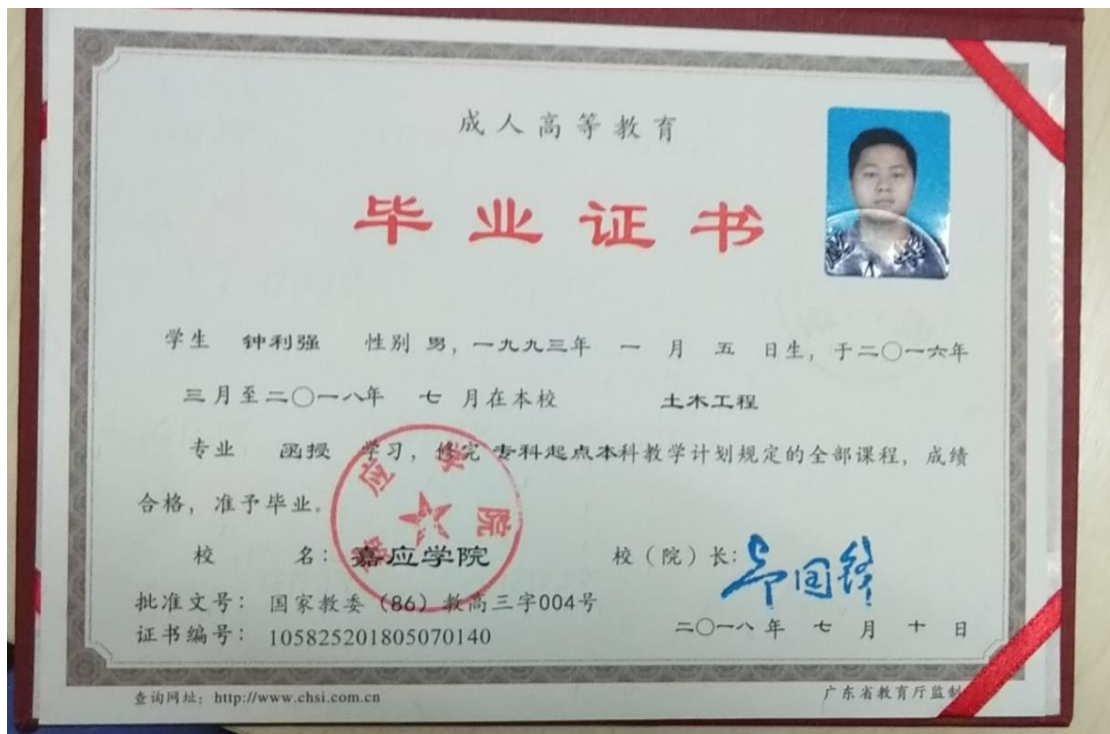 成人高等教育
毕业证书
学生 钟利强 性别 男，一九九三年 一 月 五 日生，于二〇一六年
三月至二〇一八年 七 月在本校 土木工程
专业 函授 学习，修完 专科起点本科教学计划规定的全部课程，成绩
合格，准予毕业。
校 名：嘉应学院 校（院）长：
批准文号：国家教委（86）教高三字004号
证书编号：105825201805070140
二〇一八年 七 月 十 日
查询网址：http://www.chsi.com.cn
广东省教育厅监制